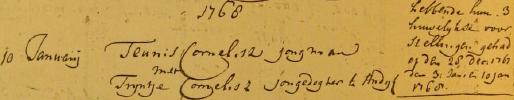 1768
10 Januarij Teunis Cornelisz jongman
met
Trijntje Cornelisz jongedogter te Andijk
hebbende hun 3
huwelijkse voor
stellingen gehad
op den 28 Dec 1767
den 3 Jan en 10 Jan
1768.